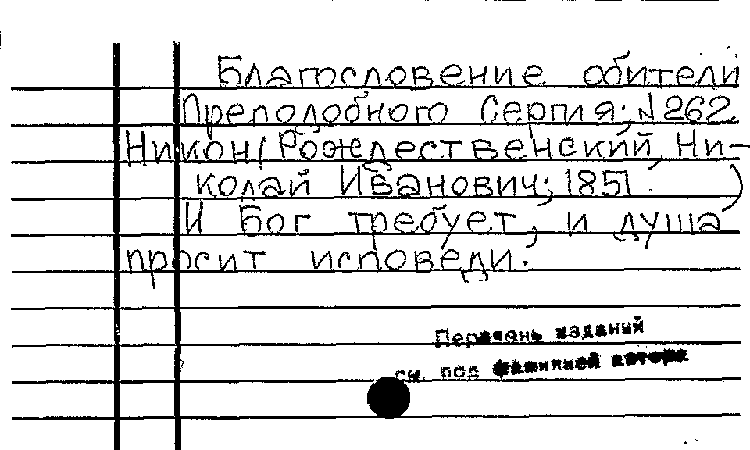 Благословение обители
Преподобного Сергия; N 262.
Никон (Рождественский, Ни-
колай Иванович; 1851. )
И Бог требует, и душа
просит исповеди.
Перечень изданий
см. под фамилией автора